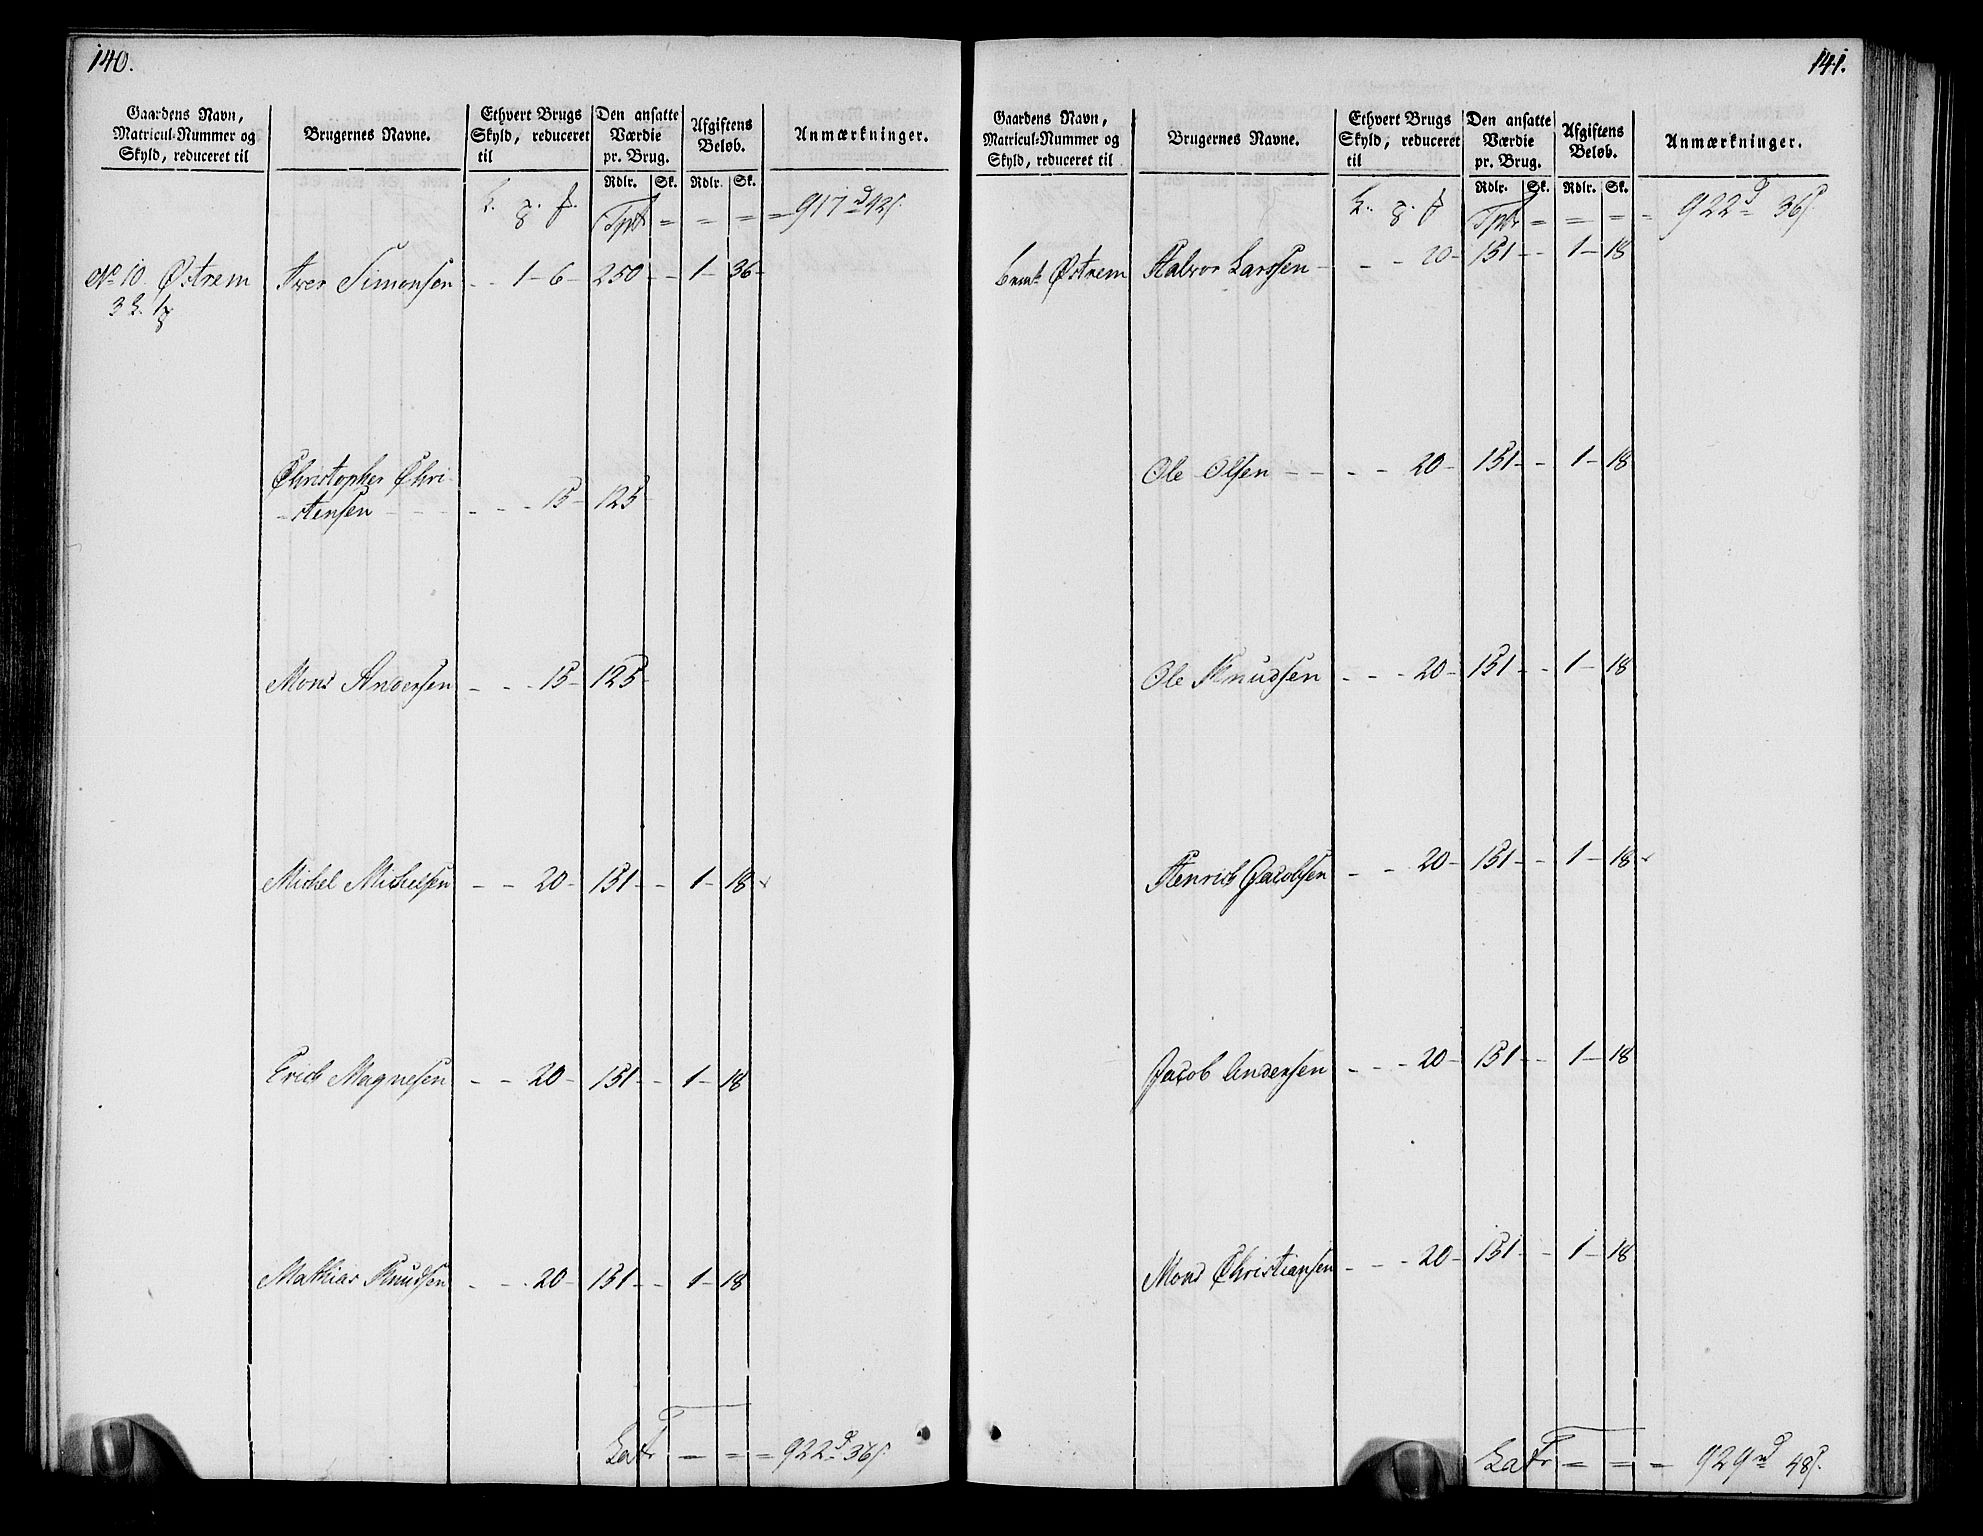 140.
Gaardens Navn,
Matricul-Nummer og
Skyld, reduceret til
Brugernes Navne.
Ethvert Brugs
Skyld, reduceret
til
Den ansatte
Værdie
pr. Brug.
Rdlr. Sk.
Afgiftens
Beløb.
Rdlr. Sk.
Anmærkninger.
Tpt = = = = 917 d 42 s.
No 10. Østrem Iver Simonsen - - 1 - 6 - 250 - - 1 - 36 -
3 L. 1
Christopher Chri-
stensen - - - - - - 15 - 125 -
Mons Andersen - - - 15 - 125 -
Michel Michelsen - - 20 - 151 - - 1 - 18
Erich Magnesen - - 20 - 151 - - 1 - 18
Mathias Knudsen - - - 20 - 151 - - 1 - 18
Latr = = = 922 d 36 s.
141.
Gaardens Navn,
Matricul-Nummer og
Skyld, reduceret til
Brugernes Navne.
Ethvert Brugs
Skyld, reduceret
til
Den ansatte
Værdie
pr. Brug.
Rdlr. Sk.
Afgiftens
Beløb.
Rdlr. Sk.
Anmærkninger.
Tptr = = = = 922 d 36 s.
bemt Østrem Halvor Larssen - - - 20 - 151 - - 1 - 18
Ole Olsen - - - - 20 - 151 - - 1 - 18
Ole Knudsen - - - 20 - 151 - - 1 - 18
Henrich Jacobsen - - 20 - 151 - - 1 - 18
Jacob Andersen - - - 20 - 151 - - 1 - 18
Mons Christiansen - - - 20 - 151 - - 1 - 18
Latr = = = 929 d 48 s.